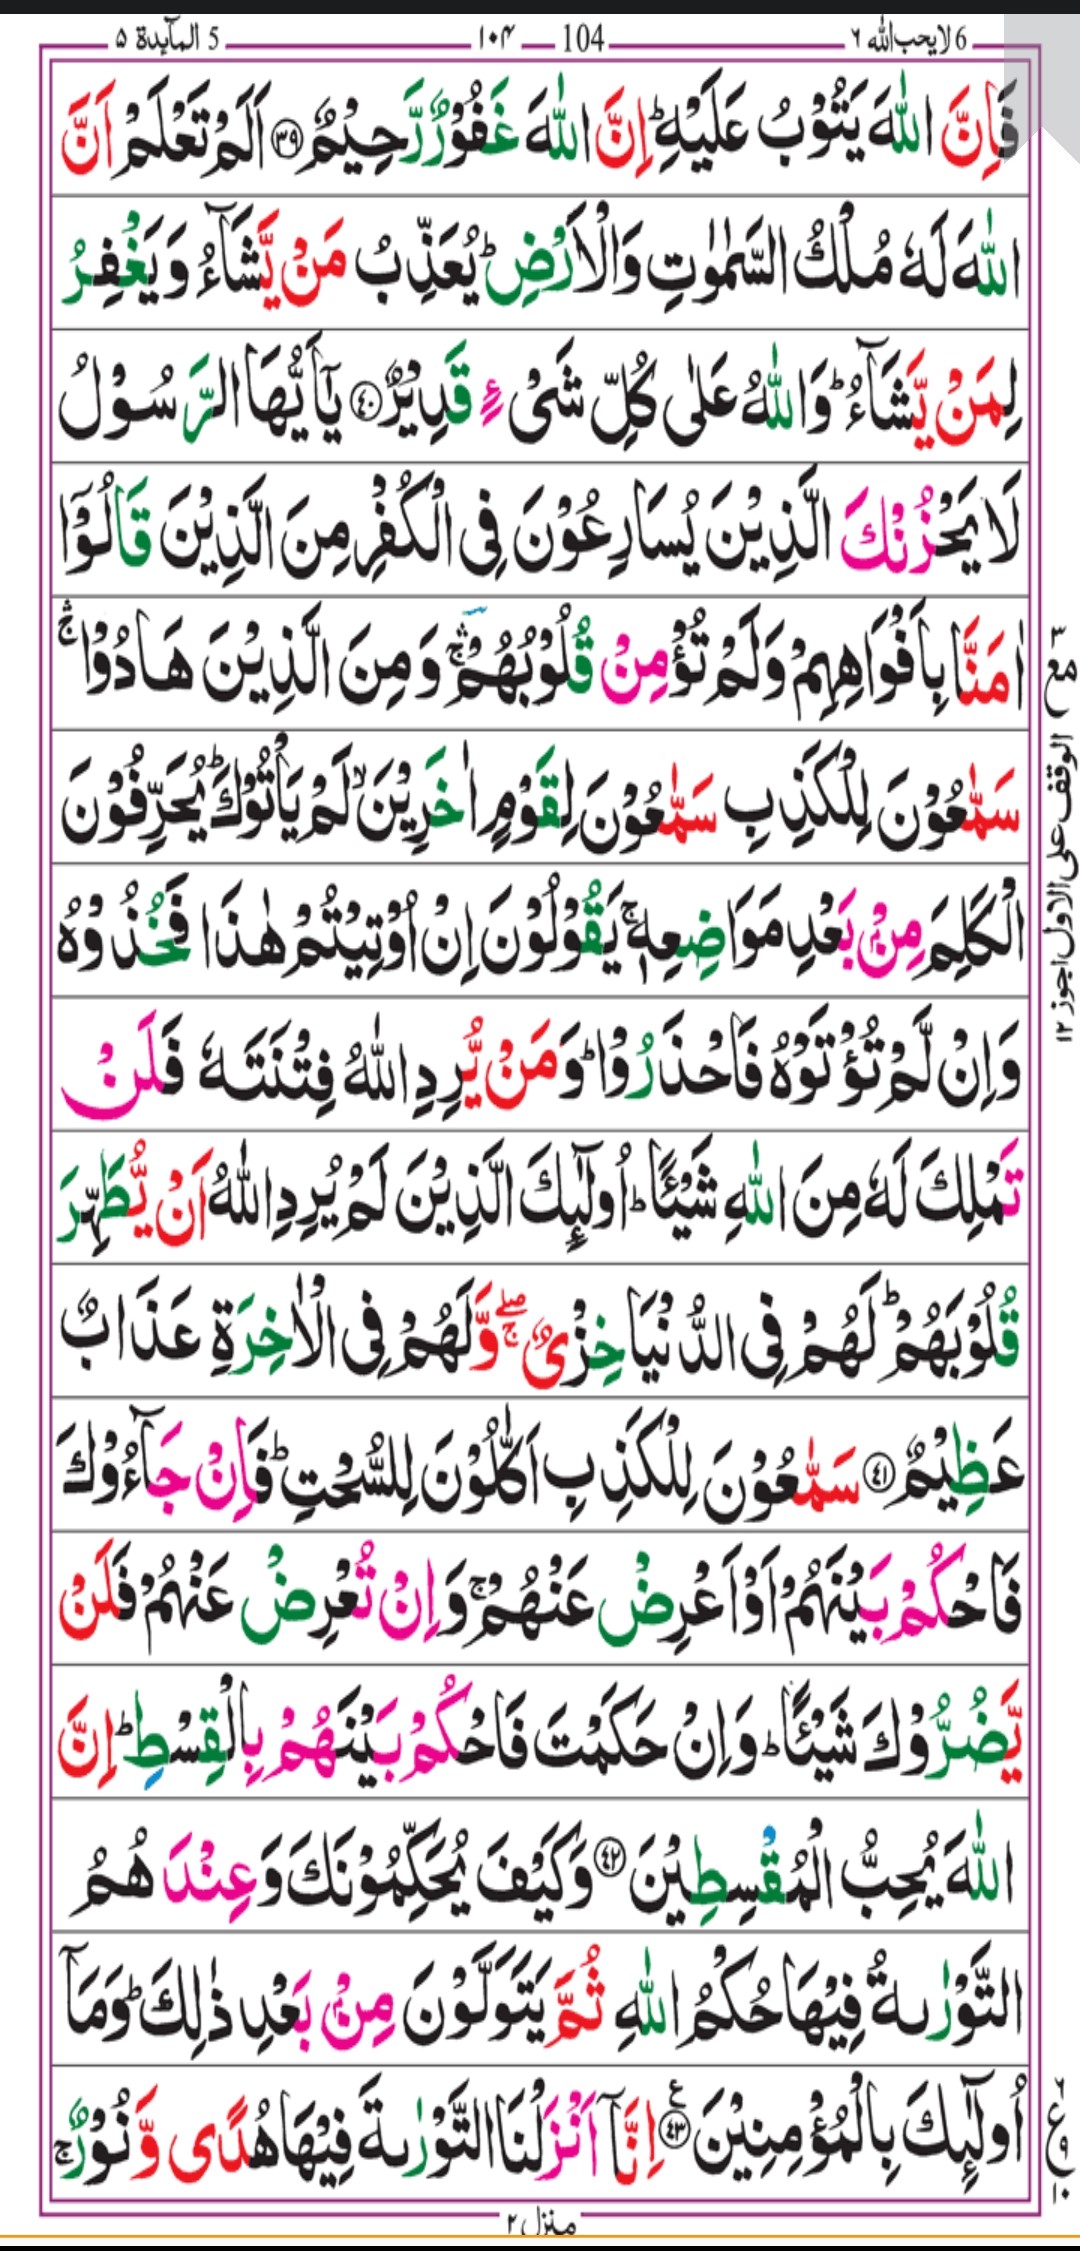 6 لا یحب الله ۶ 104 ۱۰۴ 5 المآیدة ۵
فَاِنَّ اللّٰهَ يَتُوْبُ عَلَيْهِ ؕ اِنَّ اللّٰهَ غَفُوْرٌ رَّحِيْمٌ ﴿۳۹﴾ اَلَمْ تَعْلَمْ اَنَّ
اللّٰهَ لَهٗ مُلْكُ السَّمٰوٰتِ وَالْاَرْضِ ؕ يُعَذِّبُ مَنْ يَّشَآءُ وَ يَغْفِرُ
لِمَنْ يَّشَآءُ ؕ وَاللّٰهُ عَلٰى كُلِّ شَىْءٍ قَدِيْرٌ ﴿۴۰﴾ يٰۤاَيُّهَا الرَّسُوْلُ
لَا يَحْزُنْكَ الَّذِيْنَ يُسَارِعُوْنَ فِى الْكُفْرِ مِنَ الَّذِيْنَ قَالُوْۤا
اٰمَنَّا بِاَفْوَاهِهِمْ وَلَمْ تُؤْمِنْ قُلُوْبُهُمْ ۛۚ وَ مِنَ الَّذِيْنَ هَادُوْا ۛۚ
سَمّٰعُوْنَ لِلْكَذِبِ سَمّٰعُوْنَ لِقَوْمٍ اٰخَرِيْنَ ۙ لَمْ يَاْتُوْكَ ؕ يُحَرِّفُوْنَ
الْكَلِمَ مِنْۢ بَعْدِ مَوَاضِعِهٖ ۚ يَقُوْلُوْنَ اِنْ اُوْتِيْتُمْ هٰذَا فَخُذُوْهُ
وَاِنْ لَّمْ تُؤْتَوْهُ فَاحْذَرُوْا ؕ وَ مَنْ يُّرِدِ اللّٰهُ فِتْنَتَهٗ فَلَنْ
تَمْلِكَ لَهٗ مِنَ اللّٰهِ شَيْئًا ؕ اُولٰٓئِكَ الَّذِيْنَ لَمْ يُرِدِ اللّٰهُ اَنْ يُّطَهِّرَ
قُلُوْبَهُمْ ؕ لَهُمْ فِى الدُّنْيَا خِزْىٌ ۚۖ وَّلَهُمْ فِى الْاٰخِرَةِ عَذَابٌ
عَظِيْمٌ ﴿۴۱﴾ سَمّٰعُوْنَ لِلْكَذِبِ اَكّٰلُوْنَ لِلسُّحْتِ ؕ فَاِنْ جَآءُوْكَ
فَاحْكُمْ بَيْنَهُمْ اَوْ اَعْرِضْ عَنْهُمْ ۚ وَ اِنْ تُعْرِضْ عَنْهُمْ فَلَنْ
يَّضُرُّوْكَ شَيْئًا ؕ وَاِنْ حَكَمْتَ فَاحْكُمْ بَيْنَهُمْ بِالْقِسْطِ ؕ اِنَّ
اللّٰهَ يُحِبُّ الْمُقْسِطِيْنَ ﴿۴۲﴾ وَكَيْفَ يُحَكِّمُوْنَكَ وَعِنْدَ هُمُ
التَّوْرٰىةُ فِيْهَا حُكْمُ اللّٰهِ ثُمَّ يَتَوَلَّوْنَ مِنْۢ بَعْدِ ذٰلِكَ ؕ وَمَاۤ
اُولٰٓئِكَ بِالْمُؤْمِنِيْنَ ﴿۴۳﴾ ع اِنَّاۤ اَنْزَلْنَا التَّوْرٰىةَ فِيْهَا هُدًى وَّ نُوْرٌ ۚ
منزل ۲
۳ مع
الوقف علی الاول اجوز ۱۲
ع ۹ ۱۰